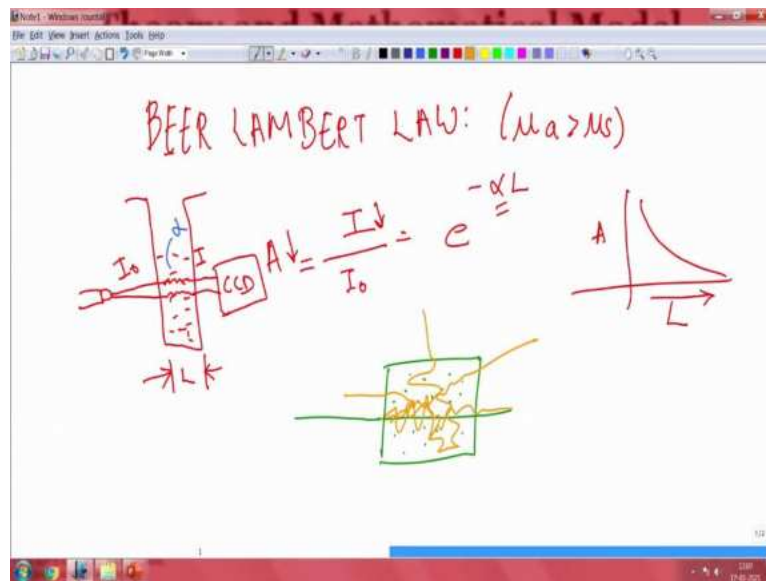 Note1 - Windows Journal
File Edit View Insert Actions Tools Help
Page Width
B I
BEER LAMBERT LAW: (μa>μs)
I₀ α I CCD
L
A↓ = I↓ / I₀ = e^-αL
A
L
1
1/2